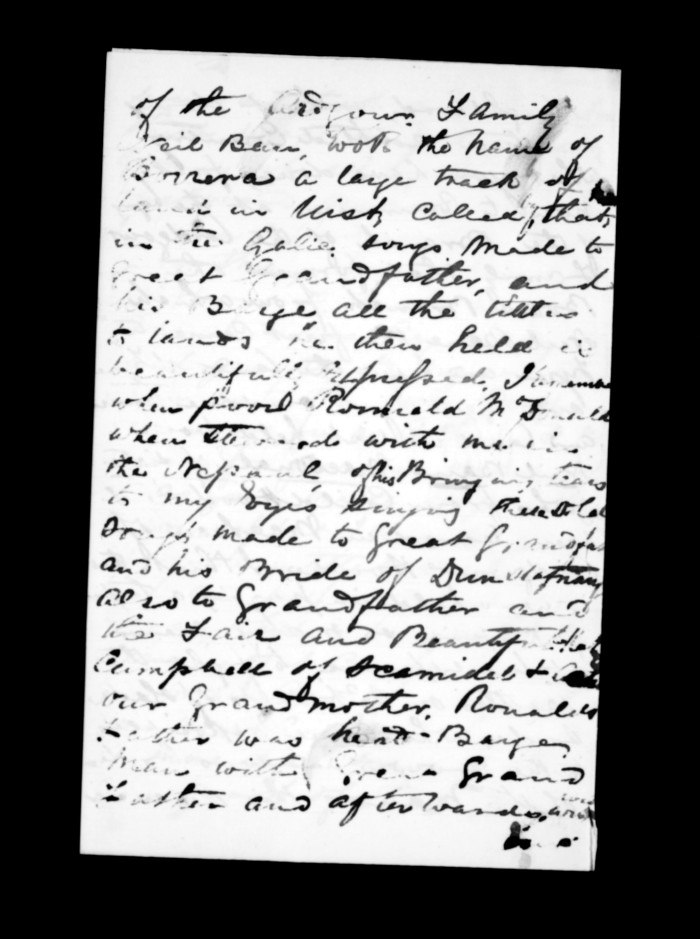 of the Ardgour Family
Neil Ban, took the name of
Borrera a large track of
land in Uist Called, that
in the Galic songs Made to
Great Grandfather, and
his Barge all the titles
to lands he then held is
beautifully Expressed, I remember
when poor Ronald McDonald
when Steward with me in
the Nepaul, of his Bringing tears
to my Eyes singing these Old
songs made to Great Grandfat
and his Bride of Dunstafnag
also to Grandfather and
the Fair and Beautiful
Campbell of Scamidel &
our Grandmother, Ronalds
Father was head Barge
Man with Great Grand
Father and afterwards,